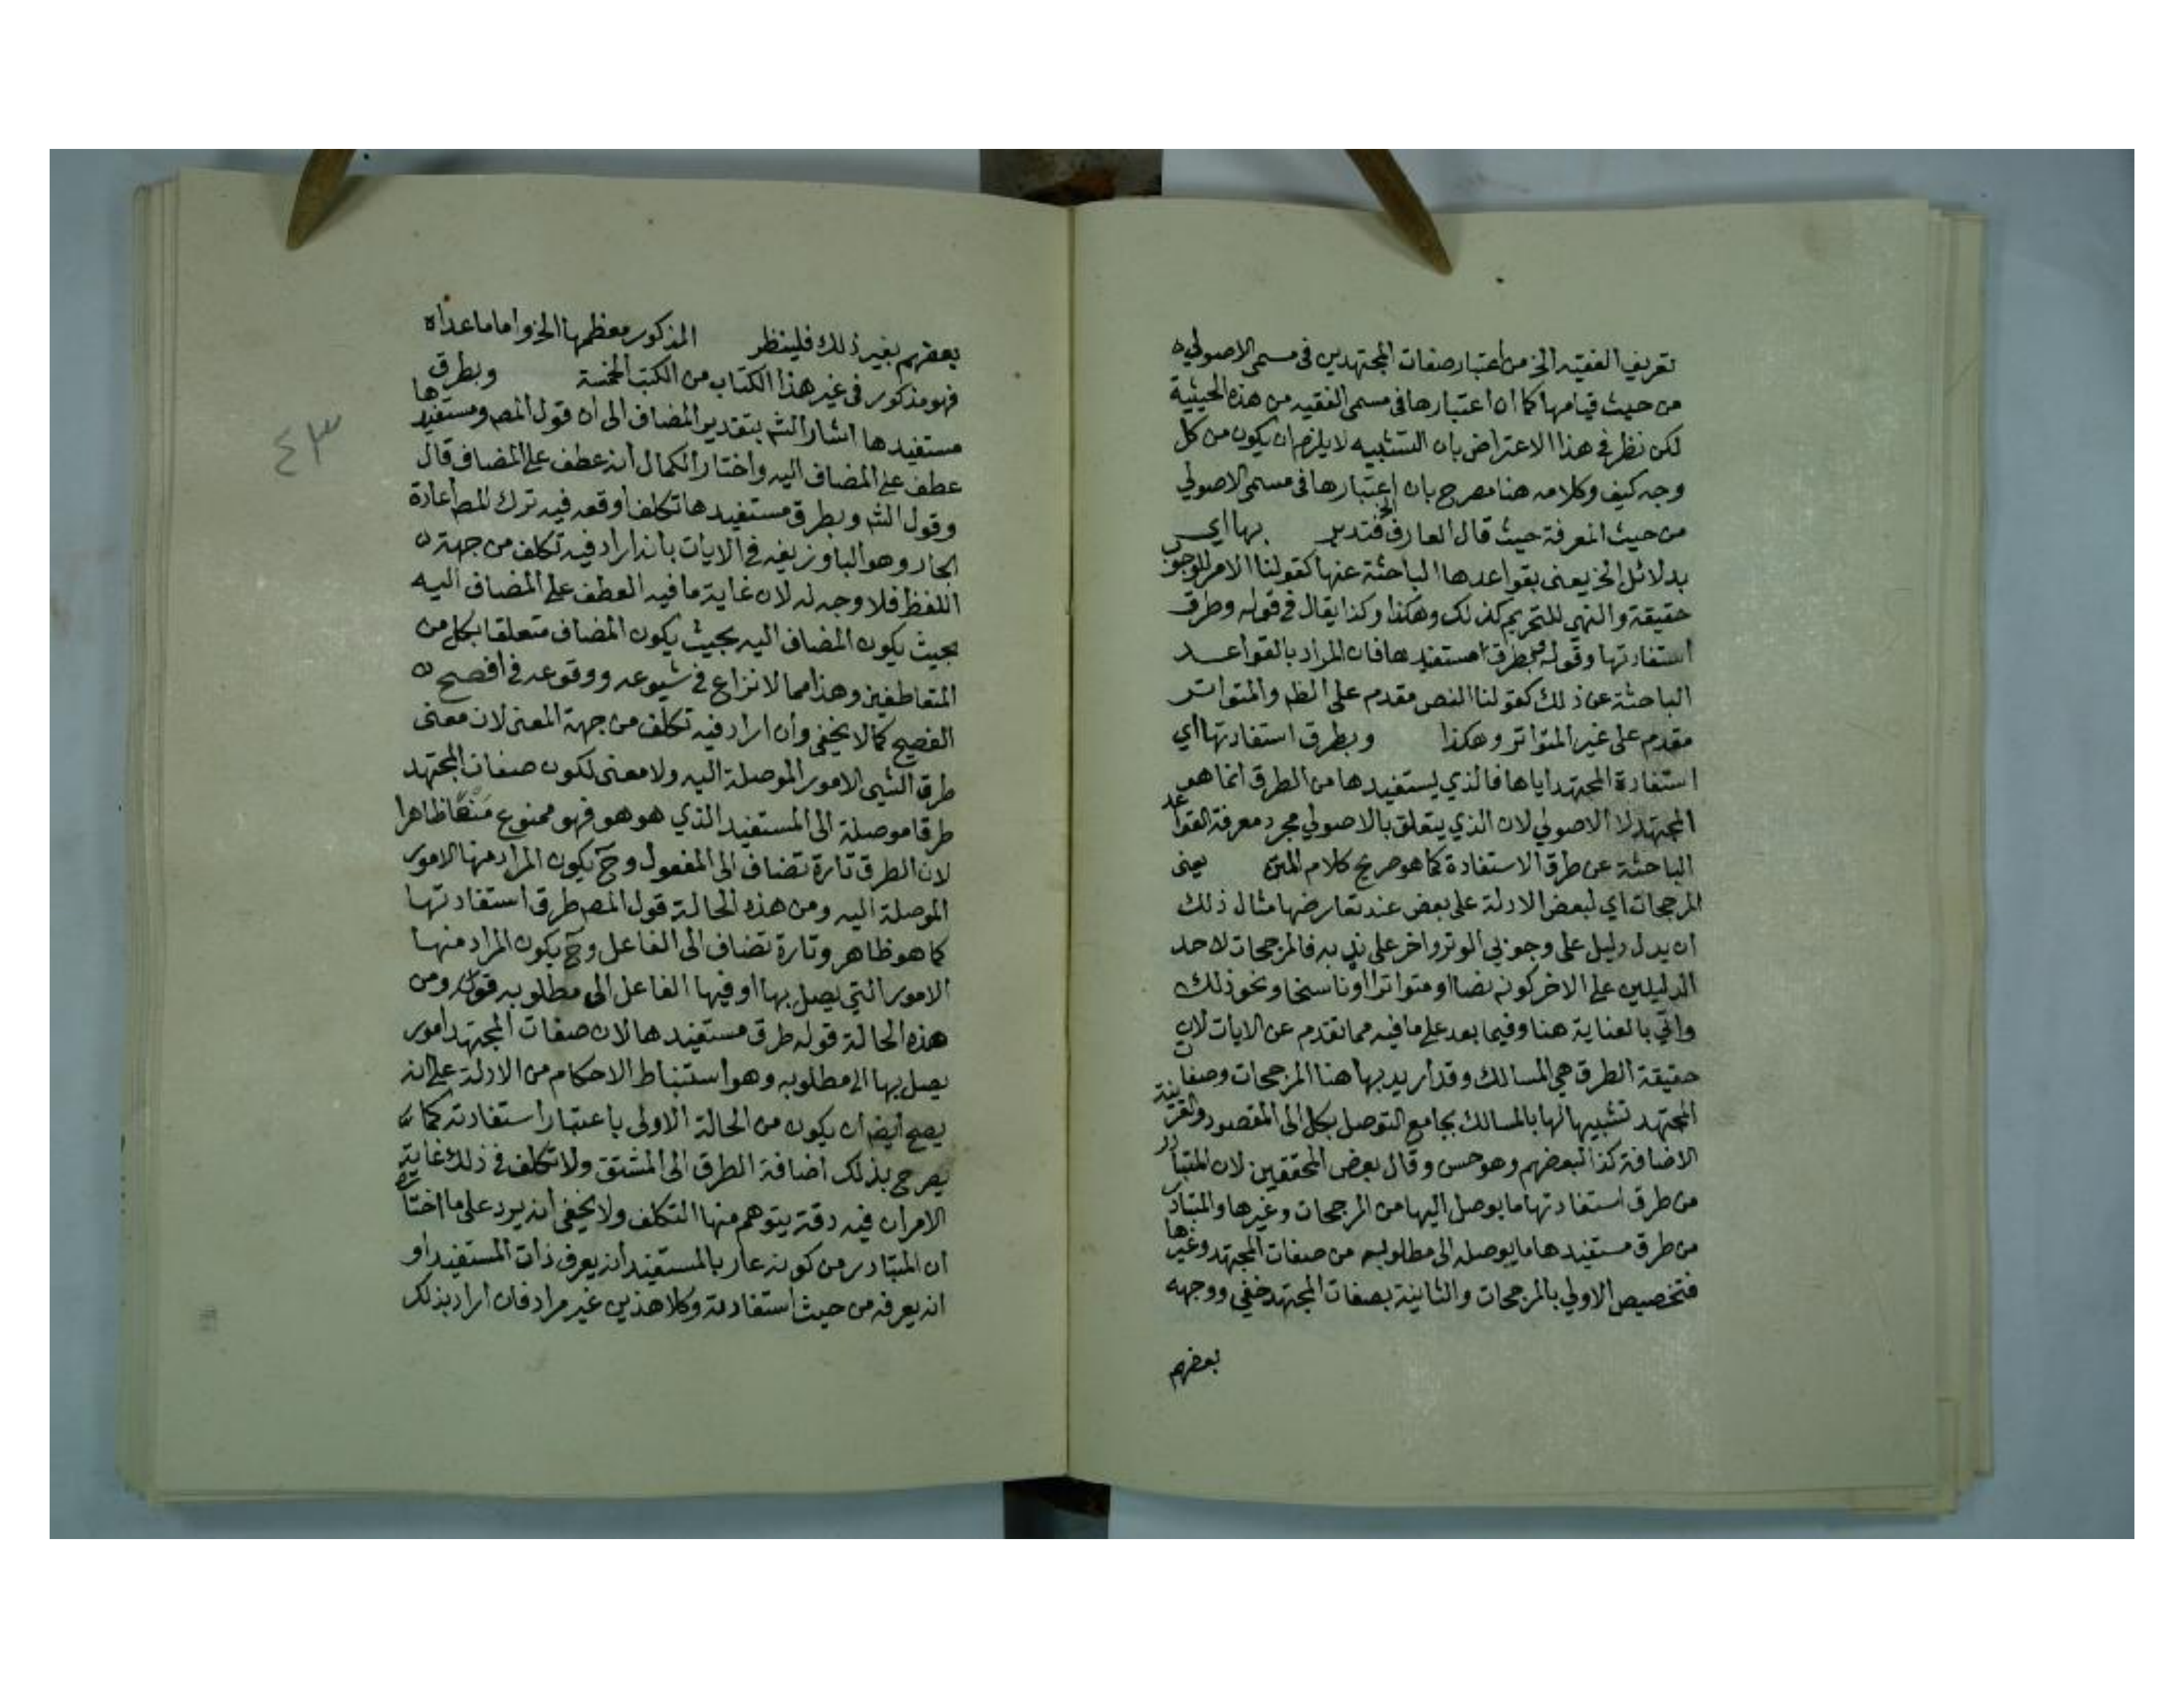 تعريف الفقيه الخ من اعتبار صفات المجتهدين فى مسمى الاصولى
من حيث قيامها كما ان اعتبارها فى مسمى الفقيه من هذه الحيثية
لكن نظر فى هذا الاعتراض بان التشبيه لا يلزم ان يكون من كل
وجه كيف وكلامه هنا مصرح بان اعتبارها فى مسمى الاصولي
من حيث المعرفة حيث قال العارف الخ فتدبر بها اي
بدلائل الخ يعنى بقواعدها الباحثة عنها كقولنا الامر للوجوب
حقيقة والنهى للتحريم كذلك وهكذا وكذا يقال فى قوله وطرق
استفادتها وقوله وبطرق مستفيدها فان المراد بالقواعد
الباحثة عن ذلك كقولنا النص مقدم على الظه والمتواتر
مقدم على غير المتواتر وهكذا وبطرق استفادتها اي
استفادة المجتهد اياها فالذي يستفيدها من الطرق انما هو
المجتهد لا الاصولي لان الذي يتعلق بالاصولي مجرد معرفة القواعد
الباحثة عن طرق الاستفادة كما هو صريح كلام المتن يعنى
المرجحات اي لبعض الادلة على بعض عند تعارضها مثال ذلك
ان يدل دليل على وجوب الوتر واخر على ندبه فالمرجحات لاحد
الدليلين على الاخر كونه نصا او متواترا او ناسخا ونحو ذلك
واتي بالعناية هنا وفيما بعد على ما فيه مما تقدم عن الايات لان
حقيقة الطرق هى المسالك وقد اريد بها هنا المرجحات وصفات
المجتهد تشبيها لها بالمسالك بجامع التوصل بكل الى المقصود والقرينة
الاضافة كذا لبعضهم وهو حسن وقال بعض المحققين لان المتبادر
من طرق استفادتها ما يوصل اليها من المرجحات وغيرها والمتبادر
من طرق مستفيدها ما يوصله الى مطلوبه من صفات المجتهد وغيرها
فتخصيص الاولي بالمرجحات والثانية بصفات المجتهد خفي ووجهه
بعضهم
٤٣
بعضهم بغير ذلك فلينظر المذكور معظمها الخ واما ما عداه
فهو مذكور فى غير هذا الكتاب من الكتب الخمسة وبطرق
مستفيدها اشار الشم بتقدير المضاف الى ان قول المص ومستفيدها
عطف على المضاف اليه واختار الكمال انه عطف على المضاف قال
وقول الشم وبطرق مستفيدها تكلف اوقعه فيه ترك المص اعادة
الجار وهو البا وزيفه فى الايات بانه ان اراد فيه تكلف من جهة
اللفظ فلا وجه له لان غاية ما فيه العطف على المضاف اليه
بحيث يكون المضاف اليه بحيث يكون المضاف متعلقا بكل من
المتعاطفين وهذا مما لا نزاع فى شيوعه ووقوعه فى افصح
الفصيح كما لا يخفى وان اراد فيه تكلف من جهة المعنى لان معنى
طرق الشيى الامور الموصلة اليه ولا معنى لكون صفات المجتهد
طرقا موصلة الى المستفيد الذي هو هو فهو ممنوع منعا ظاهرا
لان الطرق تارة تضاف الى المفعول وح يكون المراد منها الامور
الموصلة اليه ومن هذه الحالة قول المص طرق استفادتها
كما هو ظاهر وتارة تضاف الى الفاعل وح يكون المراد منها
الامور التي يصل بها او فيها الفاعل الى مطلوبه ومن
هذه الحالة قوله طرق مستفيدها لان صفات المجتهد امور
يصل بها الى مطلوبه وهو استنباط الاحكام من الادلة على انه
يصح ايضا ان يكون من الحالة الاولى باعتبار استفادته كما
يصرح بذلك اضافة الطرق الى المشتق ولا تكلف فى ذلك غاية
الامر ان فيه دقة يتوهم منها التكلف ولا يخفى انه يرد على ما اختاره
ان المتبادر من كونه عارفا بالمستفيد انه يعرف ذات المستفيد او
انه يعرفه من حيث استفادته وكلا هذين غير مراد فان اراد بذلك